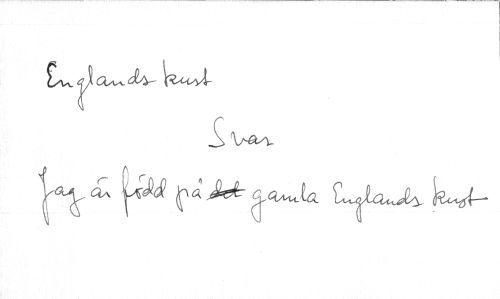 Englands kust
Svar
Jag är född på gamla Englands kust